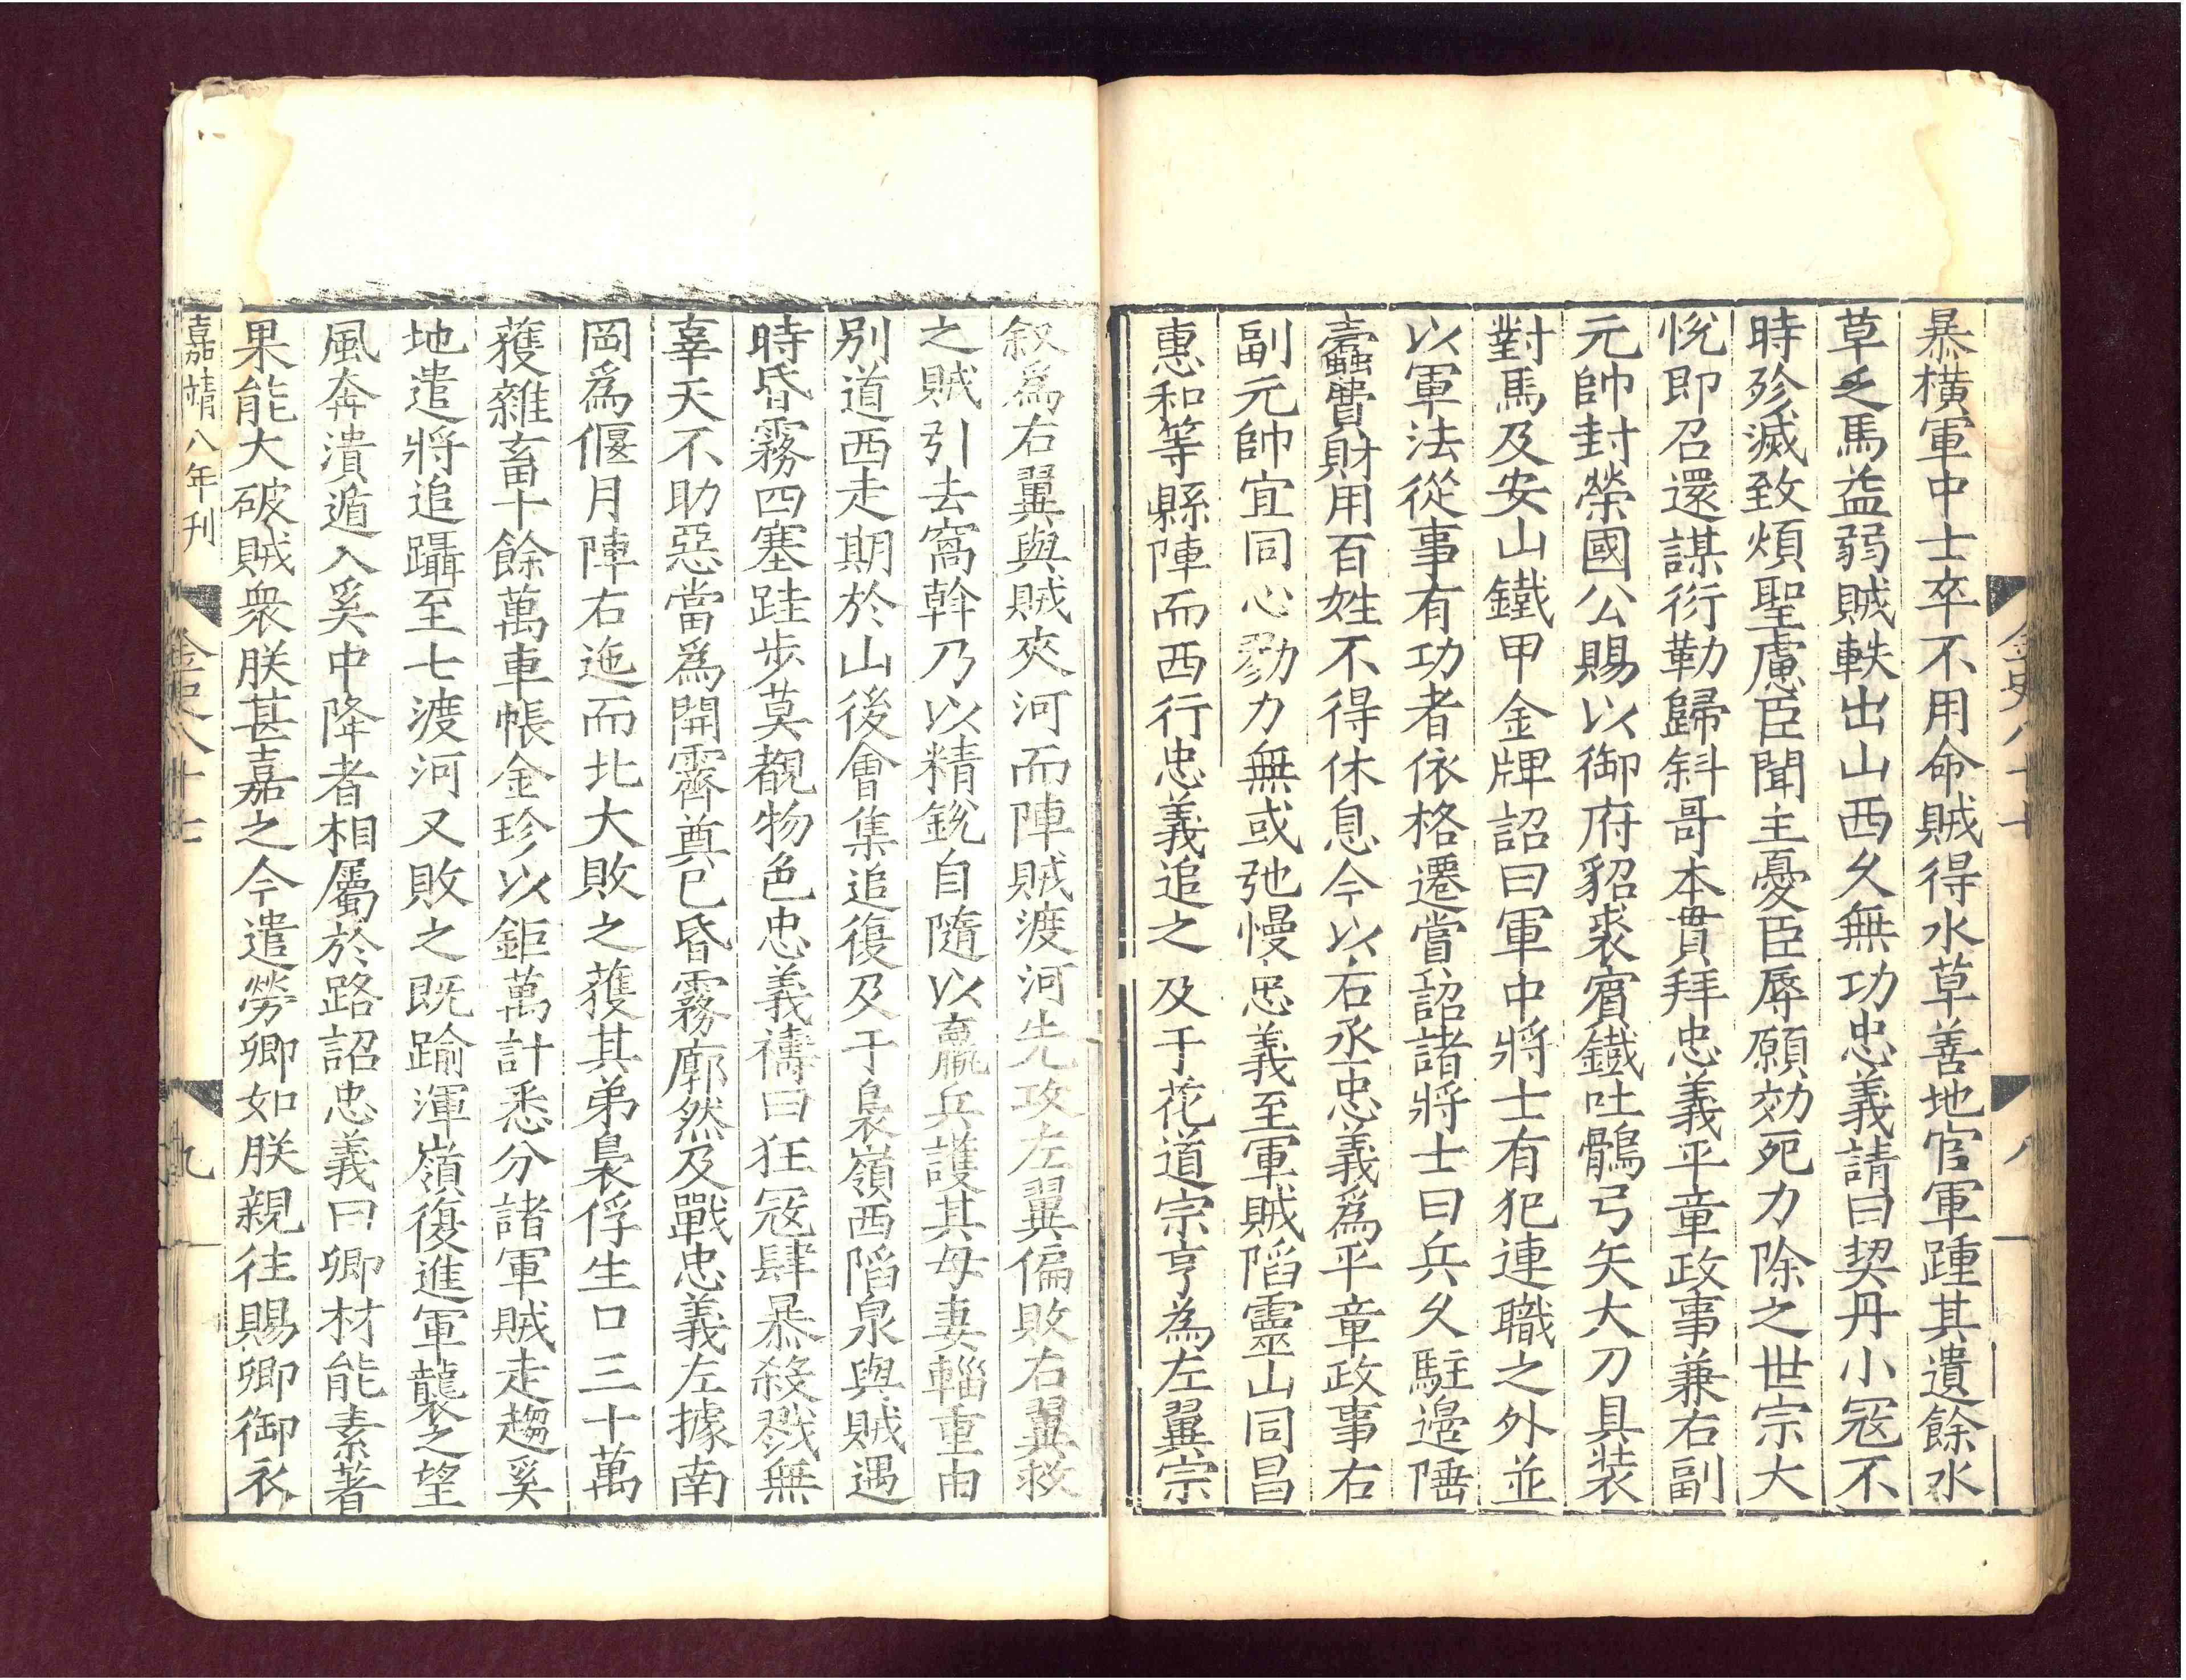 金史八十七
八
暴横軍中士卒不用命賊得水草善地官軍踵其遺餘水
草乏馬益弱賊軼出山西久無功忠義請曰契丹小宼不
時殄滅致煩聖慮臣聞主憂臣辱願効死力除之世宗大
恱即召還謀衍勒歸斜哥本貫拜忠義平章政事兼右副
元帥封榮國公賜以御府貂裘賔鐵吐鶻弓矢大刀具装
對馬及安山鐵甲金牌詔曰軍中將士有犯連職之外並
以軍法從事有功者依格遷賞詔諸將士曰兵久駐邊陲
蠹費財用百姓不得休息今以右丞忠義爲平章政事右
副元帥宜同心勠力無或弛慢忠義至軍賊陷靈山同昌
惠和等縣陣而西行忠義追之及于花道宗亨為左翼宗
叙爲右翼與賊夾河而陣賊渡河先攻左翼偏敗右翼救
之賊引去窩斡乃以精銳自隨以羸兵護其母妻輜重由
别道西走期於山後會集追復及于裊嶺西陷泉與賊遇
時昏霧四塞跬步莫覩物色忠義禱曰狂宼肆暴殺戮無
辜天不助惡當爲開霽奠已昏霧廓然及戰忠義左據南
岡爲偃月陣右迤而北大敗之獲其弟裊俘生口三十萬
獲雜畜十餘萬車帳金珍以鉅萬計悉分諸軍賊走趨奚
地遣將追躡至七渡河又敗之既踰渾嶺復進軍襲之望
風奔潰遁入奚中降者相屬於路詔忠義曰卿材能素著
果能大破賊衆朕甚嘉之今遣勞卿如朕親往賜卿御衣
嘉靖八年刊
金史八十七
九